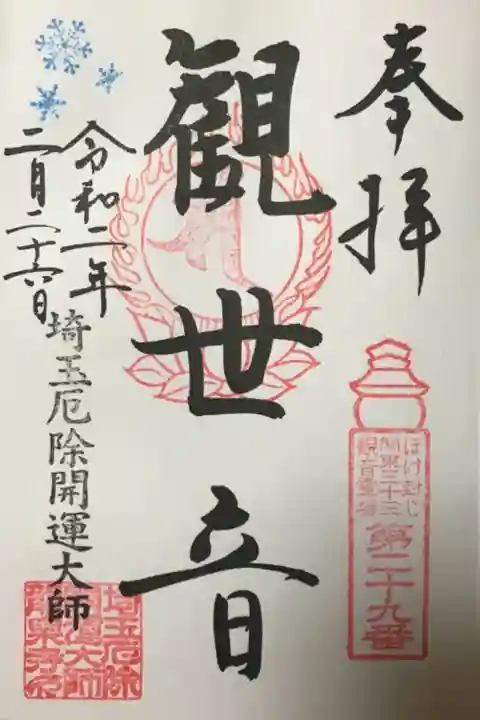 奉拝
ほけ封じ
関東三十三
観音霊場
第二十九番
観世音
令和二年
二月二十六日
埼玉厄除開運大師
埼玉厄除
開運大師
龍泉寺印